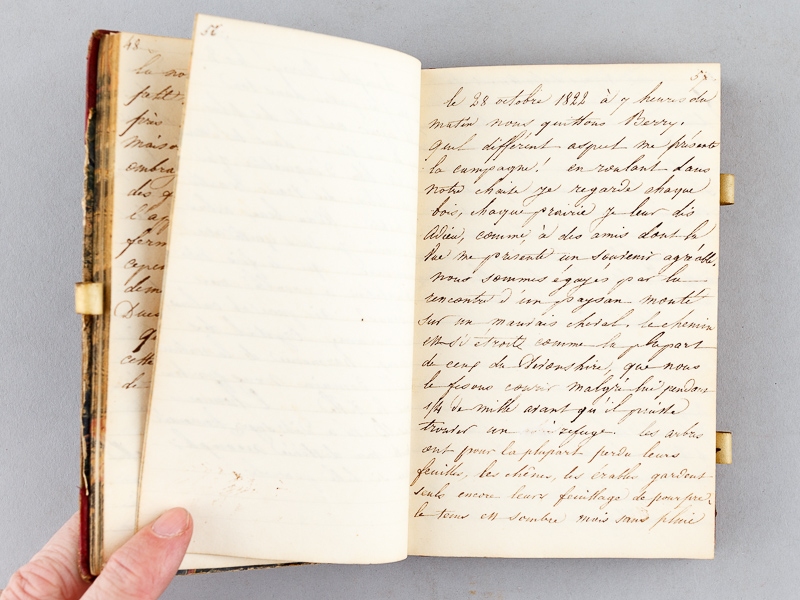 48
la no
près
maiso
ombra
des g
l'ap
ferm
cepen
dem
cette
de
56
58
le 28 octobre 1822 à 7 heures du
matin nous quittons Berry.
quel différent aspect me présente
la campagne! en roulant dans
notre chaite je regarde chaque
bois, chaque prairie je leur dis
adieu, comme à des amis dont la
vue me présente un souvenir agréable,
nous sommes égayés par la
rencontre d'un paysan monté
sur un mauvais cheval. le chemin
est si étroit comme la plupart
de ceux du Devonshire, que nous
le fesons courir malgré lui pendant
1/4 de mille avant qu'il puisse
trouver un refuge. les arbres
ont pour la plupart perdu leurs
feuilles, les chênes, les érables gardent
seuls encore leurs feuillage de pourpre.
le tems est sombre mais sans pluie